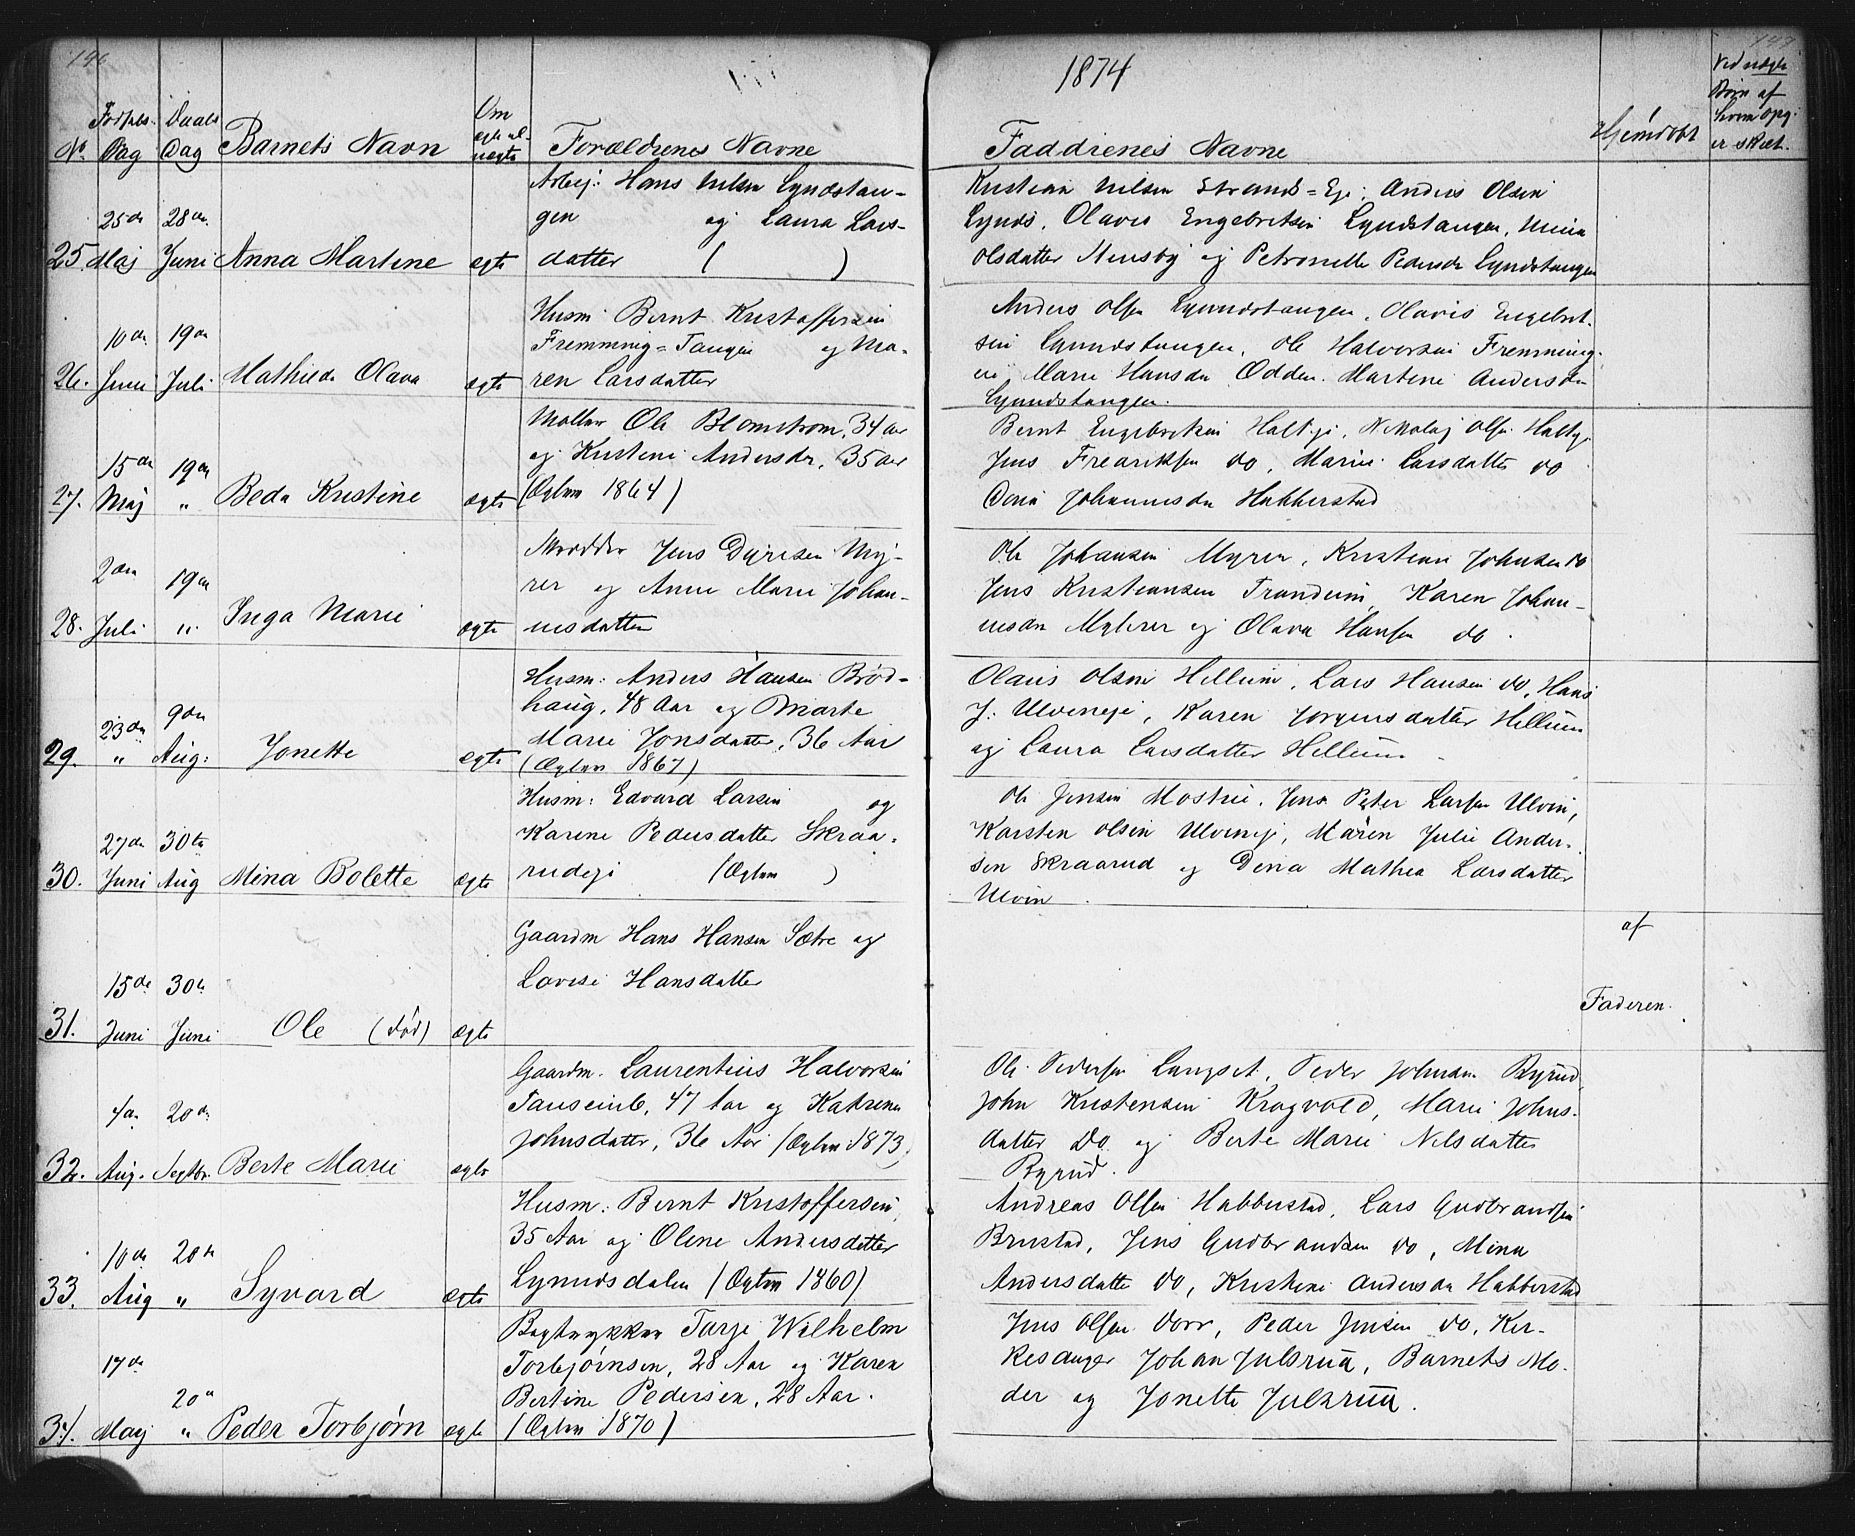 146
147
1874
No
Fødsels-
Dag
Daabs
Dag
Barnets Navn
Om
ægte el.
uægte
Forældrenes Navne
Faddrenes Navne
Hjemdøbt
Ved uægte
Børn af
hvem opg.
er skeet.
25.
25de
Maj
28de
Juni
Anna Martine
ægte
Arbej: Hans Nilsen Lyndstan-
gen og Laura Lars-
datter ( )
Kristian Nilsen Strands=Eje. Anders Olsen
Lynds. Olavus Engebretsen Lyndstangen,
Olsdatter og Petronelle Pedersdr Lyndstangen
26.
10de
Juni
19de
Juli
Mathilde Olava
ægte
Husm: Bernt Kristoffersen
Fremming=Tangen og Ma-
ren Larsdatter
Anders Olsen Lynndstangen. Olavis Engebret-
sen Lynndstangen. Ole Halvorsen Fremming-
ei Marie Hansdr Odden. Martine Andersdr
Lynndstangen.
27.
15de
Maj
19de
"
Beda Kristine
ægte
Møller Ole Blomstrøm, 34 Aar
og Kristine Andersdr, 35 Aar
(Ægtev 1864)
Bernt Engebretsen Holteje, Nikolaj Olsen Holtej.
Jens Fredriksen do, Marie Larsdatter do
Dina Johannesdr Habberstad
28.
2den
Juli
19de
"
Inga Marie
ægte
Jens Dyresen My-
rer og Anne Marie Johan-
nesdatter
Ole Johansen Myrer, Kristian Johnsen do
Jens Kristiansen Trandem, Karen Johan-
nesdr Myhrer og Olava Hansen do.
29.
23de
"
9de
Aug:
Jonette
ægte
Husm: Anders Hansen Brød-
haug, 48 Aar og Marte
Marie Jonsdatter, 36 Aar
(Ægtev 1867)
Olaus Olsen Hellum, Lars Hansen do, Hans
J. Ulveneje, Karen Jørgensdatter Hellum
og Laura Larsdatter Hellum.
30.
27de
Juni
30te
Aug
Mina Bolette
ægte
Husm: Edvard Larsen og
Karine Pedersdatter Skraa-
rudeje (Ægtev )
Ole Jensen Mostue, Jens Peter Larsen Ulvin,
Karsten Olsen Ulvenej, Maren Julie Ander-
sen Skraarud og Dina Mathea Larsdatter
Ulvin.
31.
15de
Juni
30te
Juni
Ole (død)
ægte
Gaardm Hans Hansen Sætre og
Lovise Hansdatter
af
Faderen.
32.
4de
Aug.
20de
Septbr.
Berte Marie
ægte
Gaardm. Laurentius Halvorsen
47 Aar og Katrine
Johnsdatter, 36 Aar (Ægtev 1873)
Ole Pedersen Langset, Peder Johnsen Byrud,
John Kristensen Kragvold, Marie Johns-
datter do og Berte Marie Nilsdatter
Byrud.
33.
10de
Aug
20de
"
Syvard
ægte
Husm: Bernt Kristoffersen,
35 Aar og Oline Andersdatter
Lynndsdalen (Ægtev 1860)
Andreas Olsen Habberstad, Lars Gudbrandsen
Brustad, Jens Gudbrandsen do, Mina
Andersdatter do, Kristine Andersdr Habberstad
34.
17de
Maj
20de
"
Peder Torbjørn
ægte
Bogtrykker Tarje Wilhelm
Torbjørnsen, 28 Aar og Karen
Bertine Pedersen, 28 Aar.
(Ægtev 1870)
Jens Olsen Dorr, Peder Jensen do, Kir-
kesanger Johan Julsrud, Barnets Mo-
der og Jonette Julsrud.